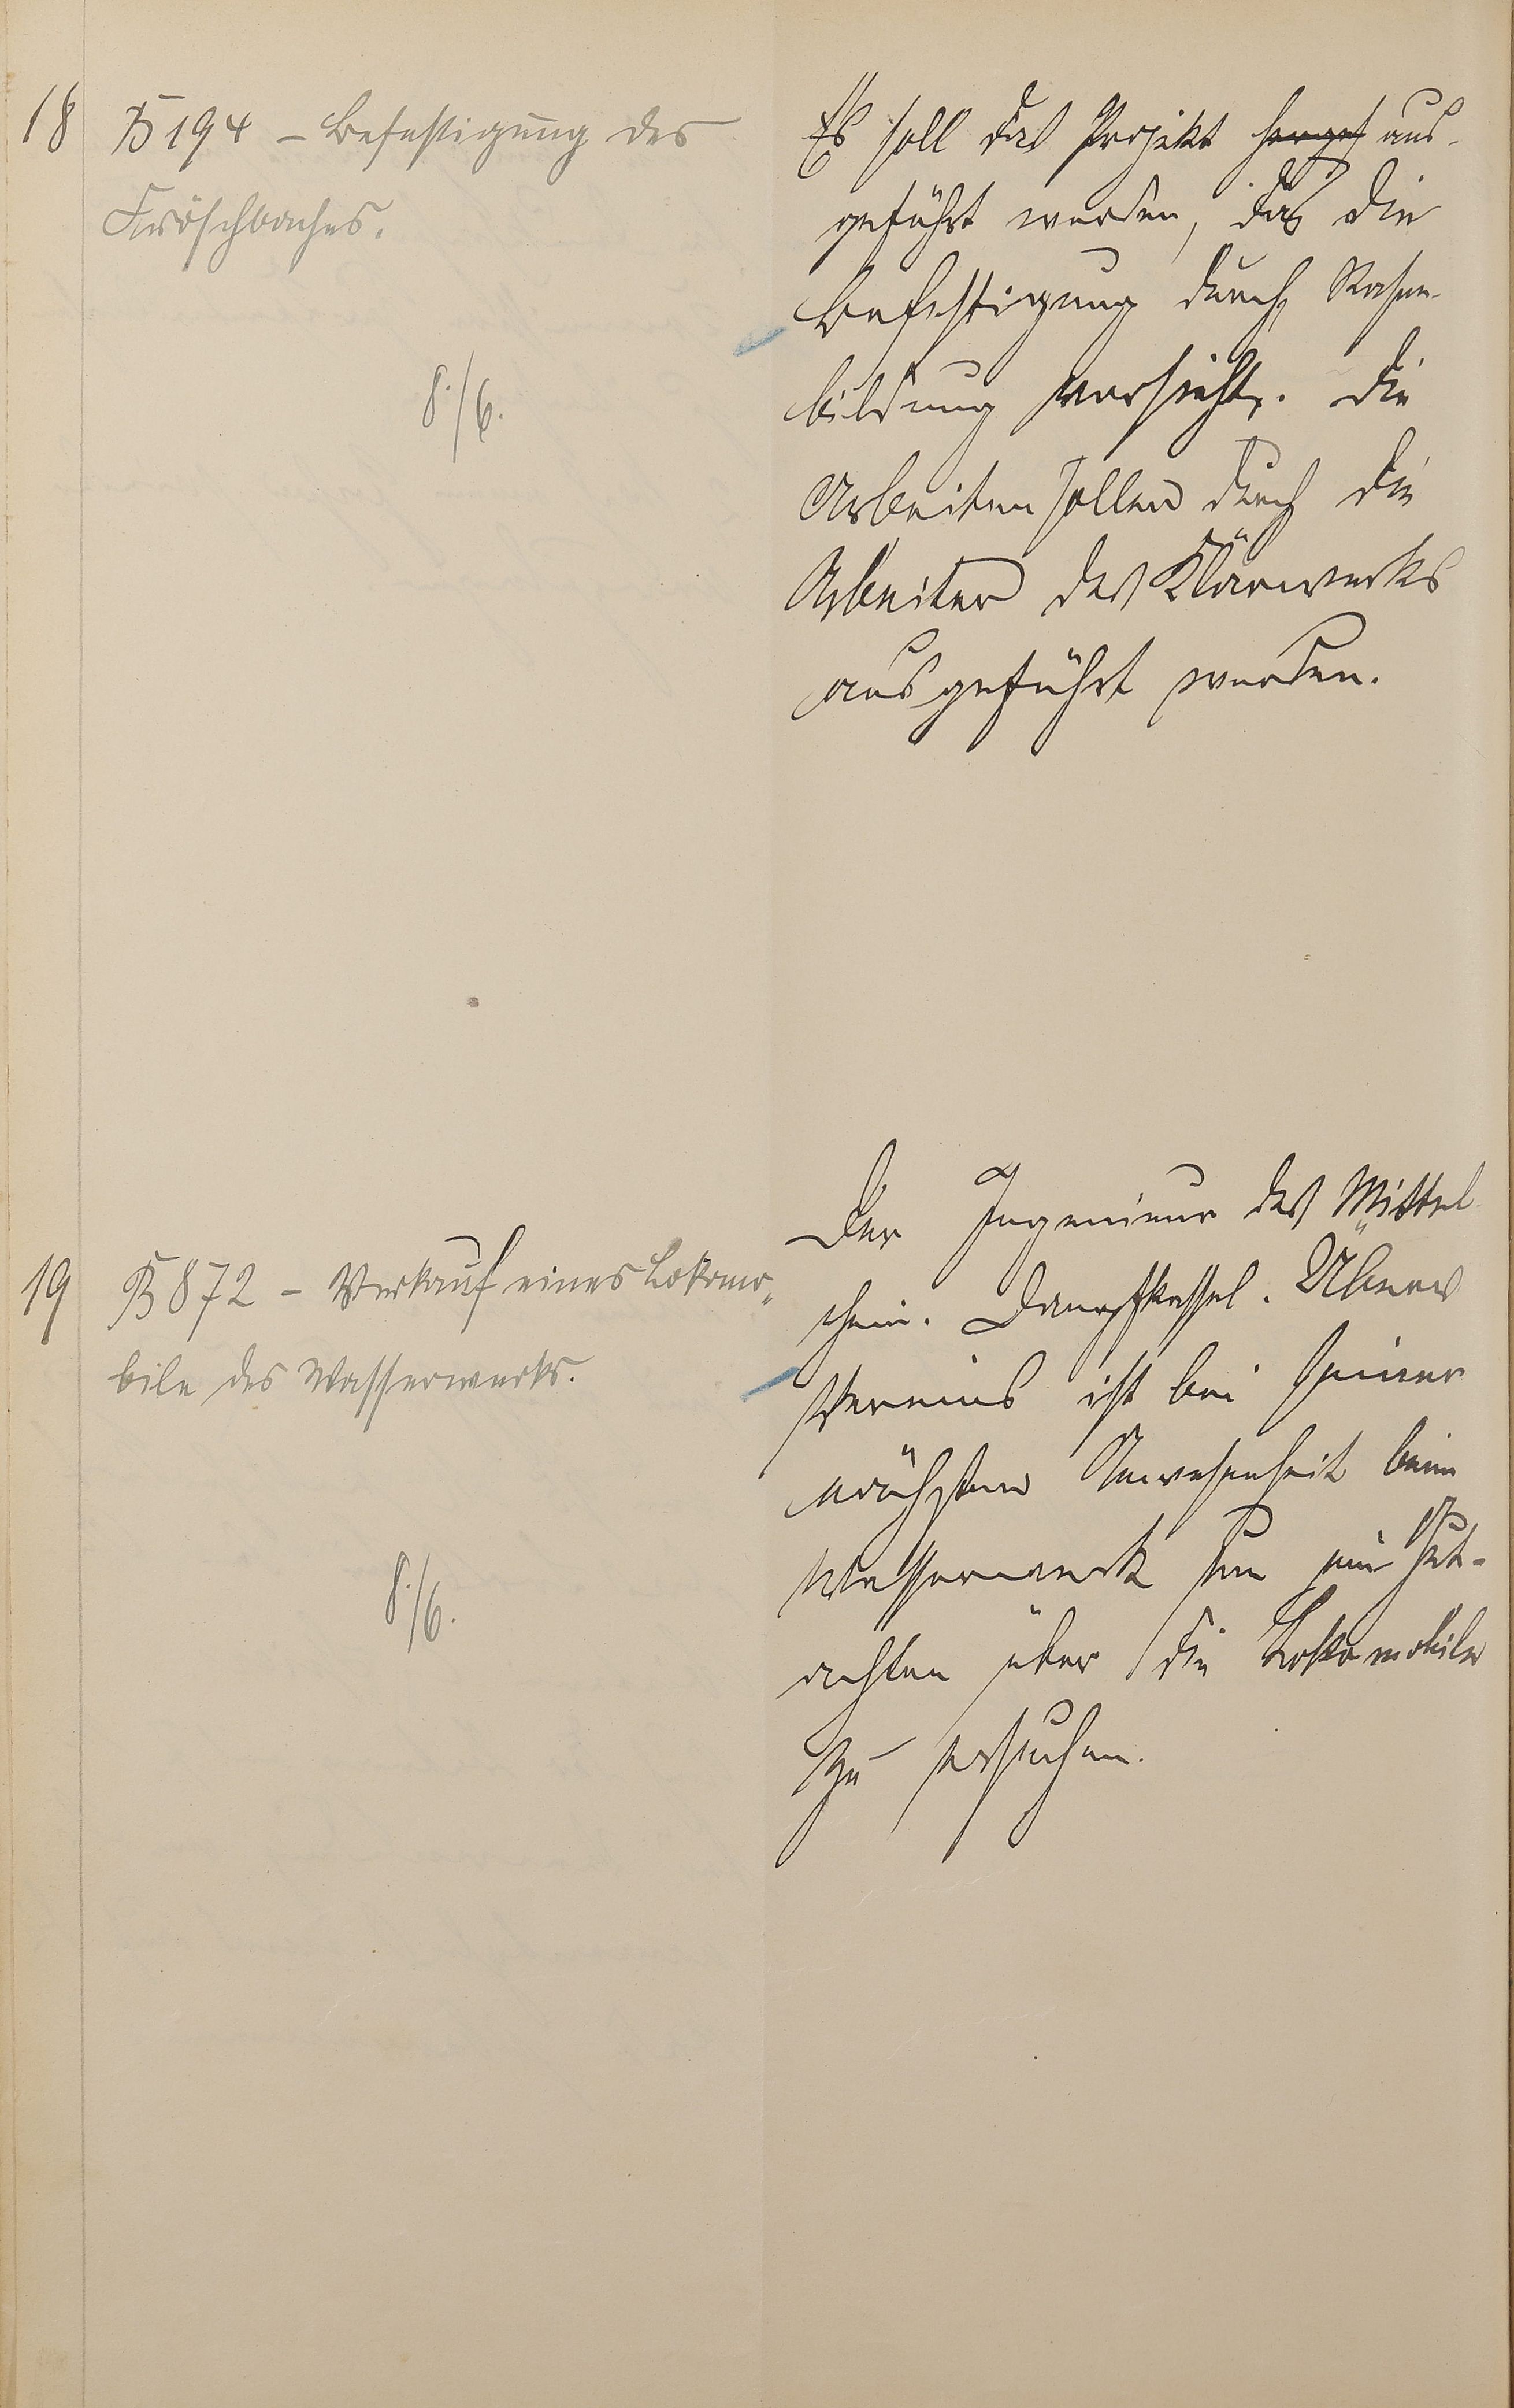 18
B 194 - Befestigung des
Kröschbaches.
8./6.
Es soll das Projekt aus-
geführt werden, das die
Befestigung durch Rasen-
bildung vorsieht. Die
Arbeiten sollen durch die
Arbeiter des Klärwerks
ausgeführt werden.
19
B 872 - Verkauf eines Lokomo„
bile des Wasserwerks.
8./6.
Der Ingenieur des Mittel
rhein. Dampfkessel. Überw
Vereins ist bei seiner
nächsten Anwesenheit beim
Wasserwerk um ein Gut-
achten über die Lokomobile
zu ersuchen.